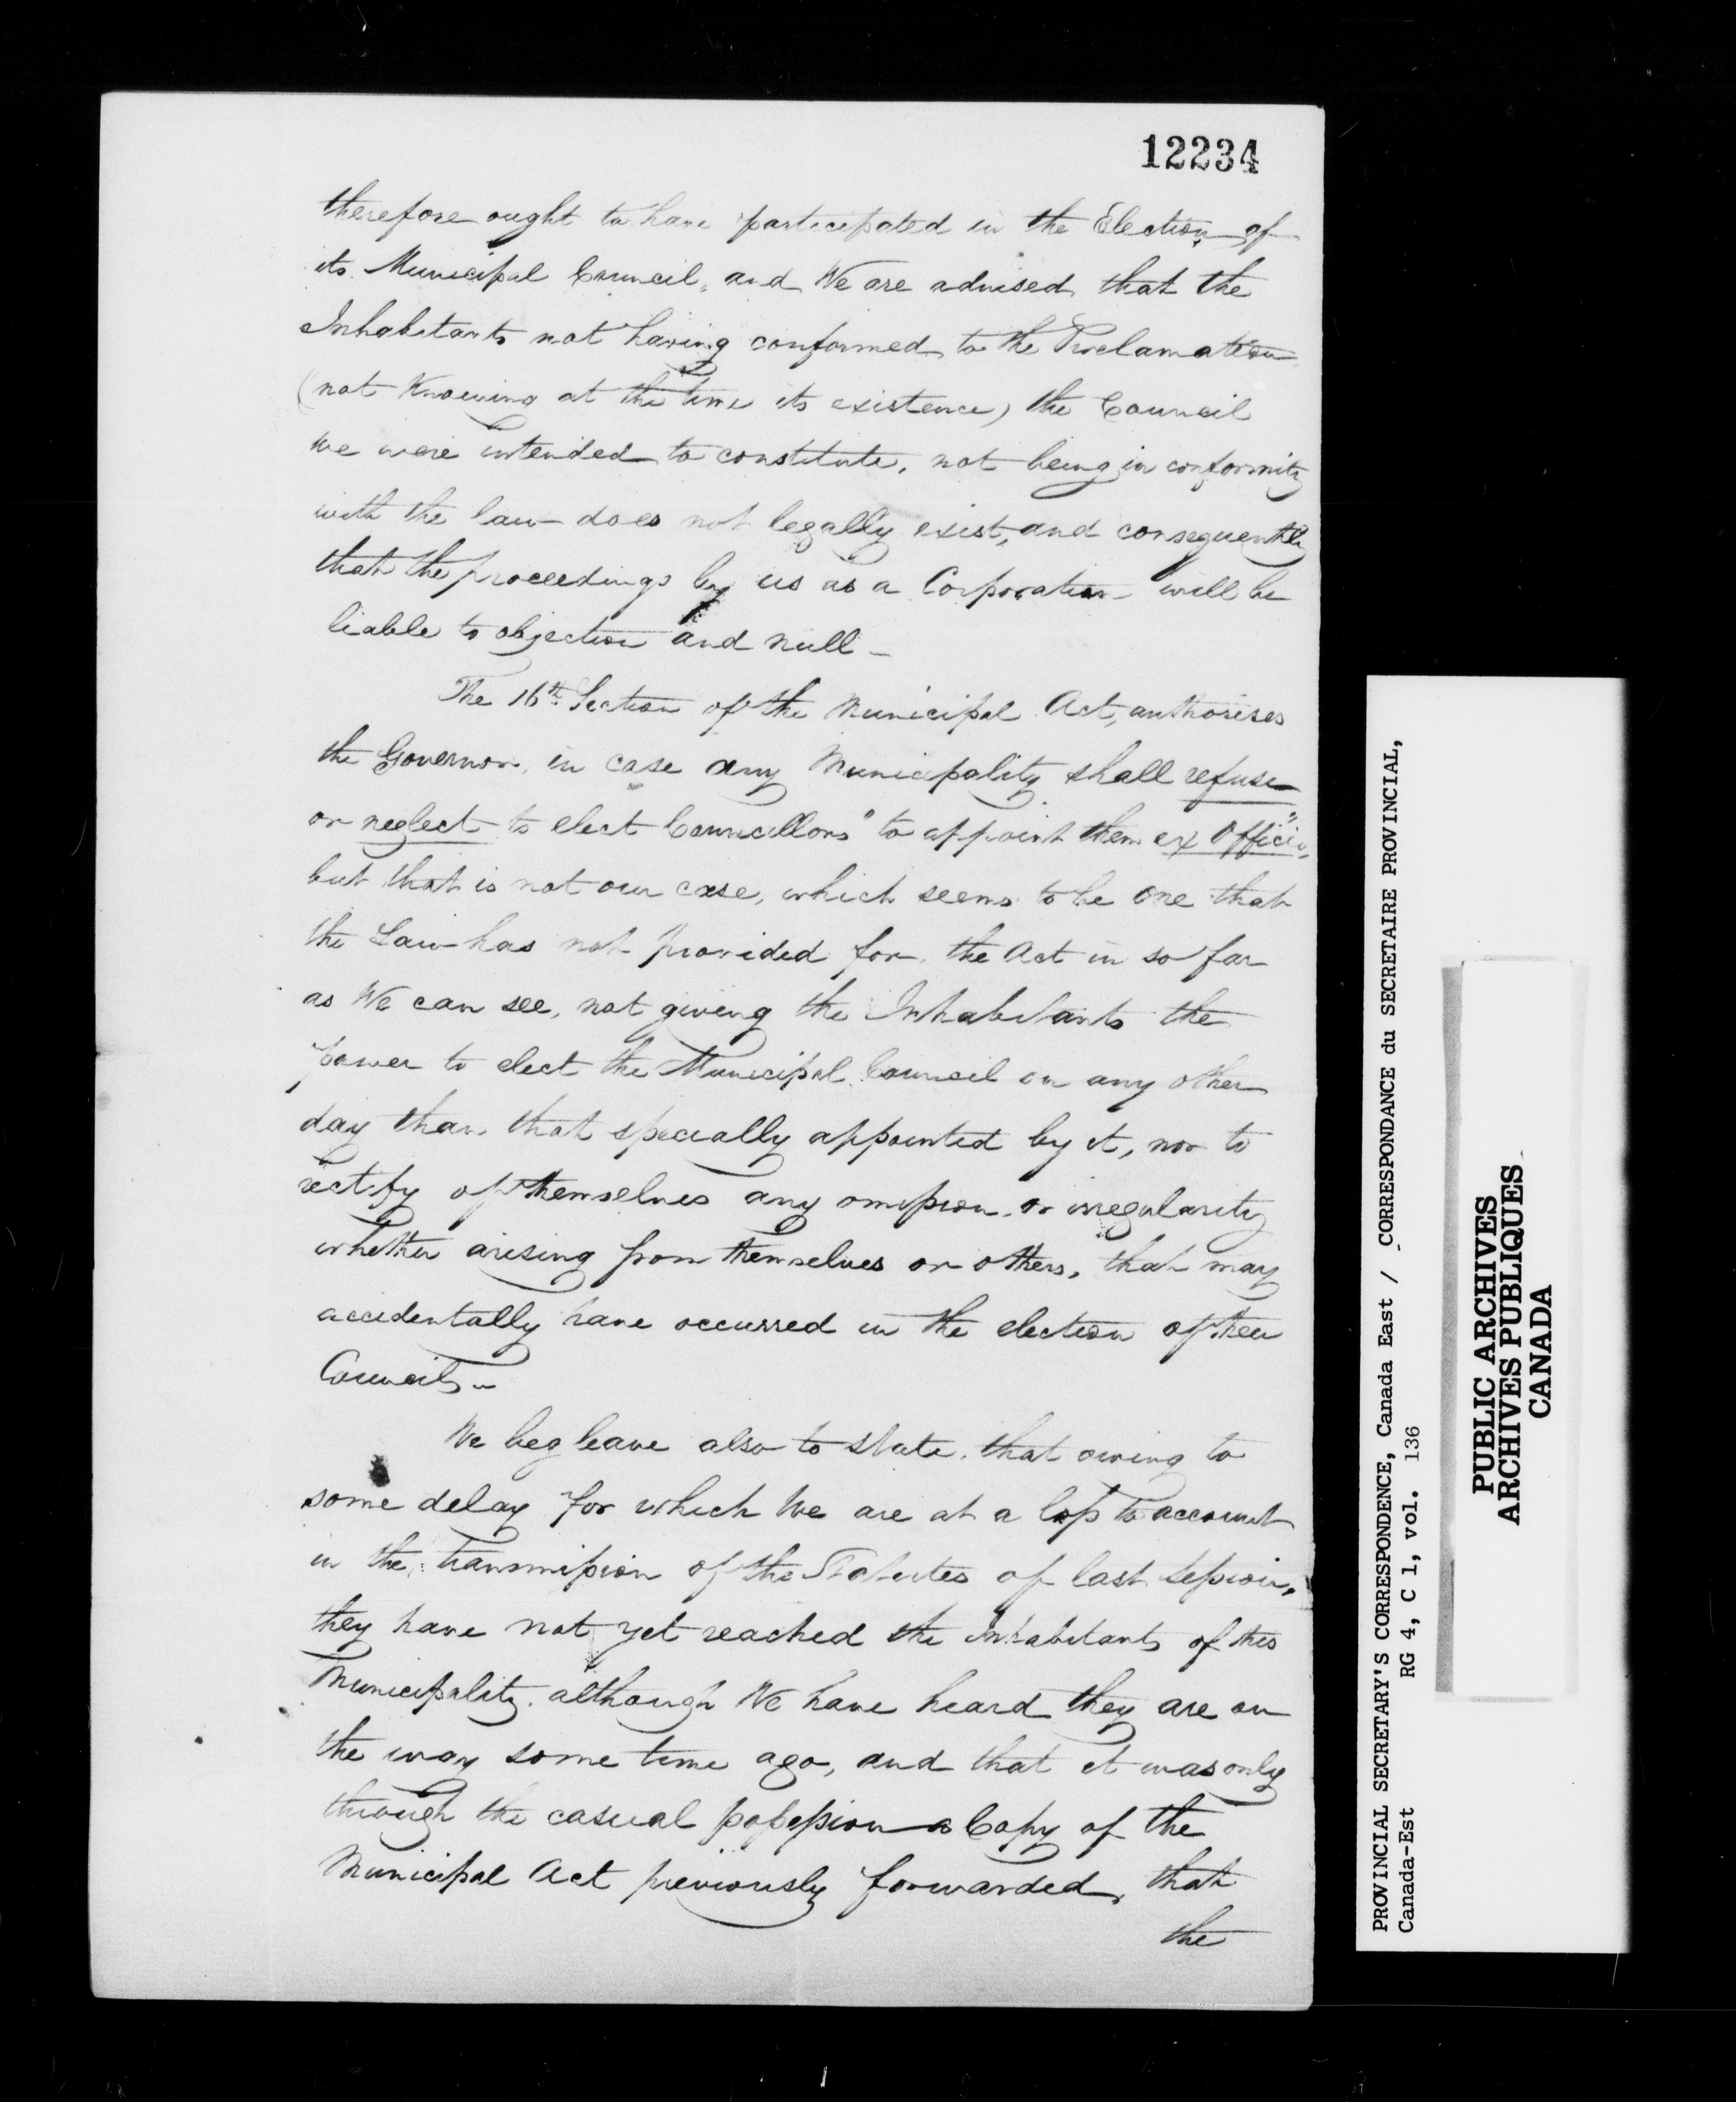 12234
therefore ought to have participated in the Election of
its Municipal Council, and We are advised that the
Inhabitants not having conformed to the Proclamation
(not Knowing at the time its existence) the Council
we were intended to constitute, not being in conformity
with the law does not legally exist, and consequently
that the proceedings by us as a Corporation will be
liable to objection and null -
The 16th Section of the Municipal Act, authorises
the Governor, in case any Municipality shall refuse
or neglect to elect Councillors" to appoint them ex Officio,
but that is not our case, which seems to be one that
the Law has not provided for, the Act in so far
as We can see, not giving the Inhabitants the
power to elect the Municipal Council on any other
day than that specially appointed by it, nor to
rectify of themselves any omission or irregularity
whether arising from themselves or others, that may
accidentally have occurred in the election of their
Councils -
We beg leave also to state, that owing to
some delay for which We are at a loss to account
in the transmission of the Statutes of last Session,
they have not yet reached the Inhabitants of this
Municipality, although We have heard they are on
the way some time ago, and that it was only
through the casual possession a Copy of the
Municipal Act previously forwarded, that
the
PROVINCIAL SECRETARY'S CORRESPONDENCE, Canada East / CORRESPONDANCE du SECRETAIRE PROVINCIAL,
Canada-Est RG 4, C 1, vol. 136
PUBLIC ARCHIVES
ARCHIVES PUBLIQUES
CANADA